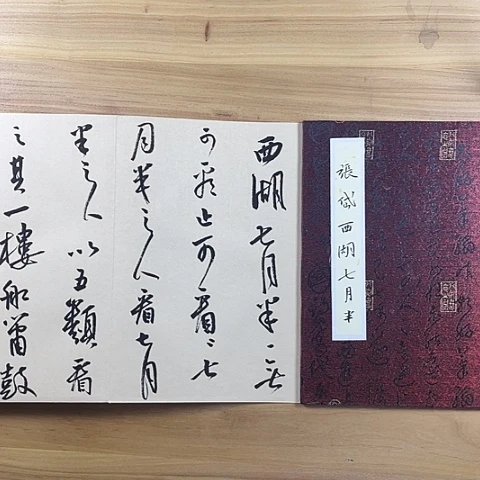 張岱西湖七月半
西湖七月半一无
可看止可看〻七
月半之人看七月
半之人以五類看
之其一樓船簫鼓